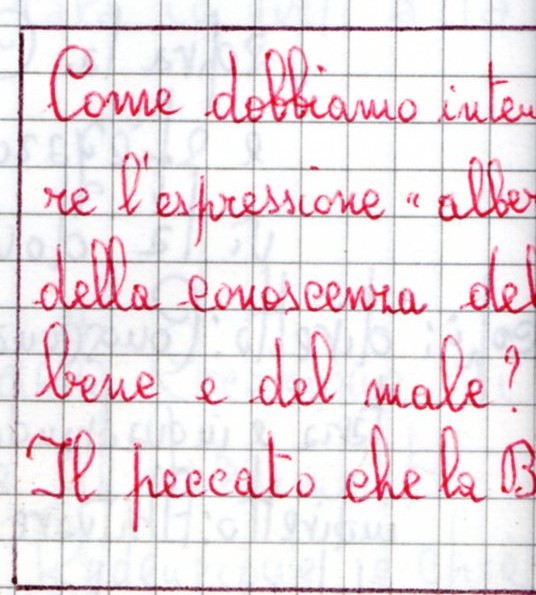 Come dobbiamo inten
re l'espressione "alber
della conoscenza del
bene e del male?
Il peccato che la B